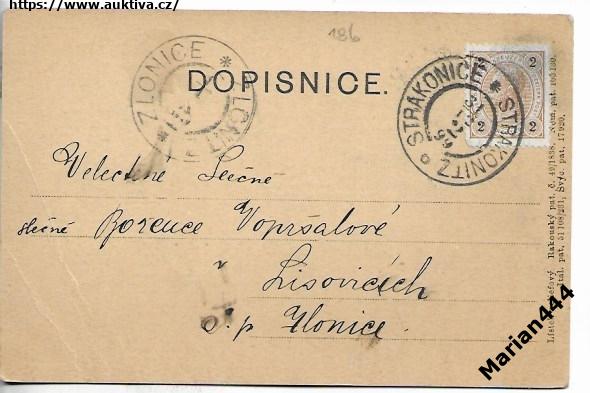 https://www.auktiva.cz/
186
ZLONICE * ZLONITZ *
DOPISNICE.
STRAKONICE * STRAKONITZ
2 2
2 2
Velectěné Slečně
slečně Božence Vopršalové
v Lisovicích
d. p Zlonice.
Rakouský pat. č. 49/1838. Něm. pat. 100130.
Ital. pat. 51108/281; Švýc. pat. 17920.
Marian444